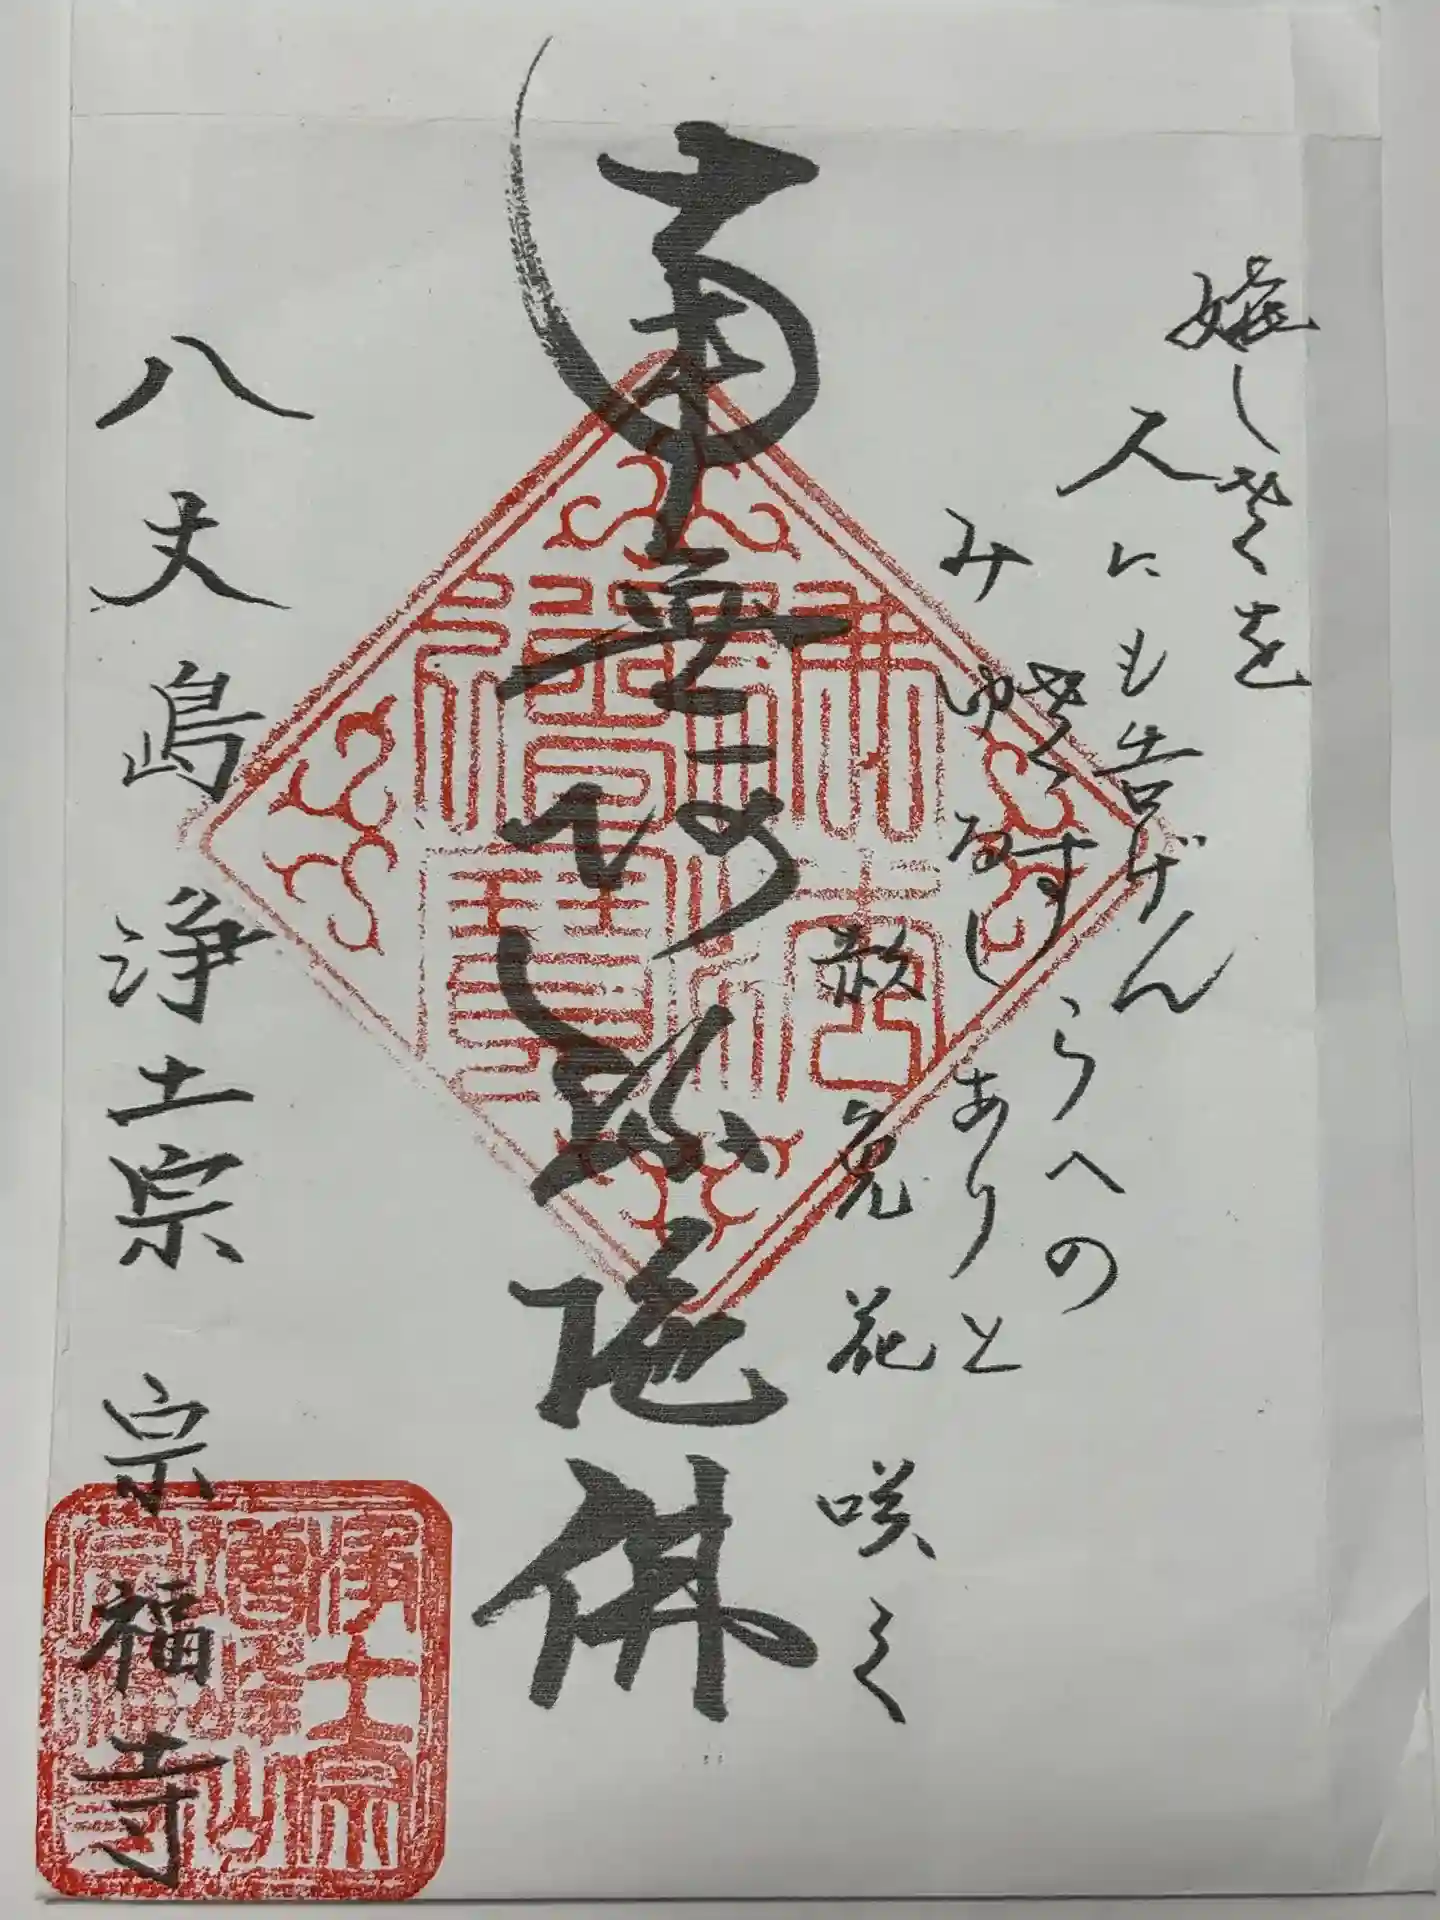 嬉しさを
人にも告げん
さすらへの
みゆるしありと
赦免花咲く
南無阿弥陀佛
八丈島浄土宗 宗福寺